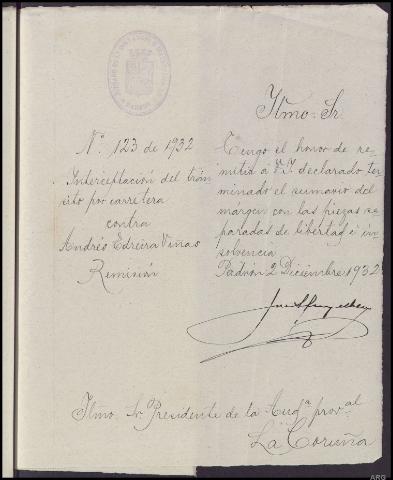 Iltmo. Sr.
Nº 123 de 1932
Interceptación del trán
sito por carretera
contra
Andrés Edreira Viñas
Remisión
Tengo el honor de re-
mitir a V.I. declarado ter-
minado el sumario del
márgen con las piezas se-
paradas de libertad é in-
solvencia
Padrón 2 Diciembre 1932
Iltmo. Sr Presidente de la Audª provᵃˡ
La Coruña
ARG